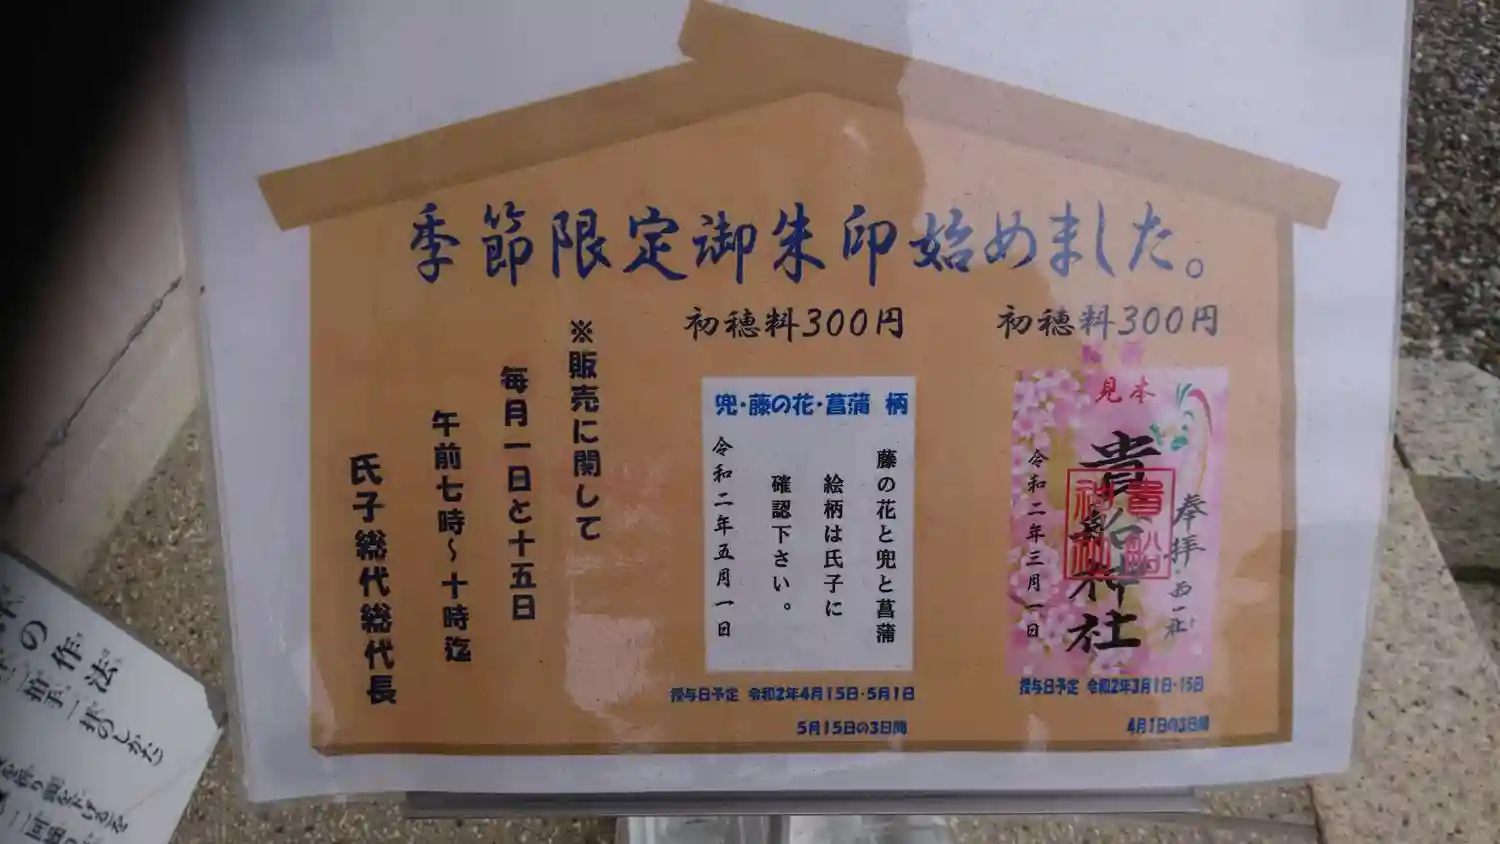 季節限定御朱印始めました。
初穂料300円
見本
奉拝
西一社
貴船神社
令和二年三月一日
授与日予定 令和2年3月1日・15日
4月1日の3日間
初穂料300円
兜・藤の花・菖蒲 柄
藤の花と兜と菖蒲
絵柄は氏子に
確認下さい。
令和二年五月一日
授与日予定 令和2年4月15日・5月1日
5月15日の3日間
※販売に関して
毎月一日と十五日
午前七時～十時迄
氏子総代総代長
の作法